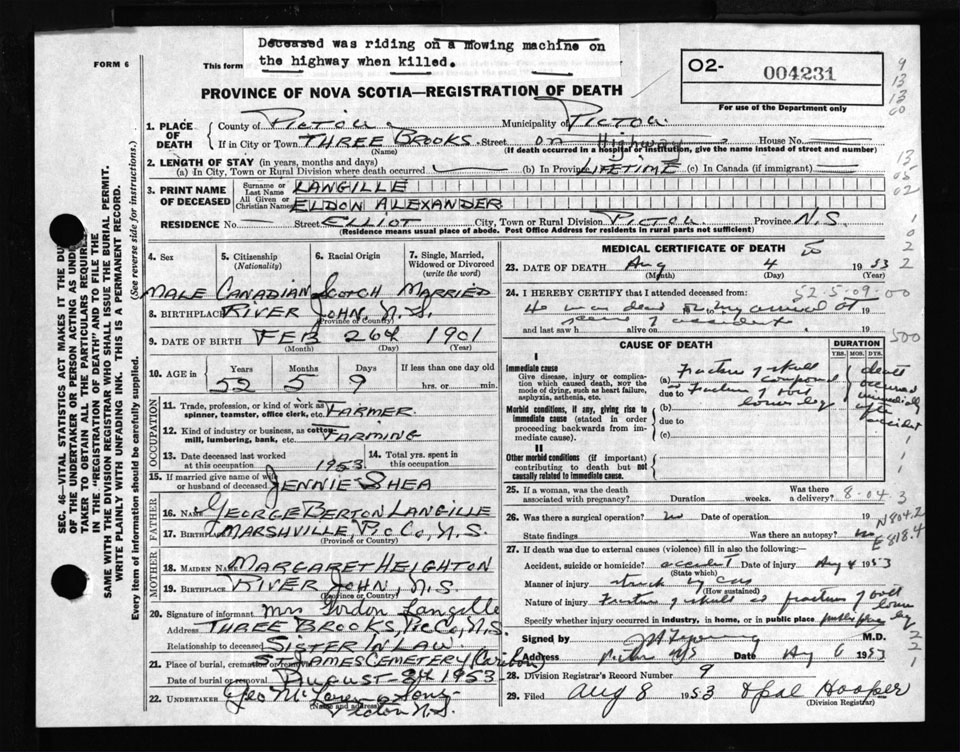 Deceased was riding on a mowing machine on
the highway when killed.
FORM 6
This form
O2- 004231
For use of the Department only
PROVINCE OF NOVA SCOTIA—REGISTRATION OF DEATH
1. PLACE OF DEATH
County of Pictou Municipality of Pictou
If in City or Town THREE BROOKS Street on Highway House No.
(Name) (If death occurred in a hospital or institution, give the name instead of street and number)
2. LENGTH OF STAY (in years, months and days)
(a) In City, Town or Rural Division where death occurred (b) In Province LIFETIME (c) In Canada (if immigrant)
3. PRINT NAME OF DECEASED
Surname or Last Name LANGILLE
All Given or Christian Names ELDON ALEXANDER
RESIDENCE No. Street ELLIOT City, Town or Rural Division PICTOU Province N.S.
(Residence means usual place of abode. Post Office Address for residents in rural parts not sufficient)
4. Sex 5. Citizenship (Nationality) 6. Racial Origin 7. Single, Married, Widowed or Divorced (write the word)
MALE CANADIAN SCOTCH MARRIED
8. BIRTHPLACE RIVER JOHN, N.S.
(Province or Country)
9. DATE OF BIRTH FEB 26th 1901
(Month) (Day) (Year)
10. AGE in Years Months Days If less than one day old
52 5 9 hrs. or min.
OCCUPATION
11. Trade, profession, or kind of work as spinner, teamster, office clerk, etc. FARMER
12. Kind of industry or business, as cotton-mill, lumbering, bank, etc. FARMING
13. Date deceased last worked at this occupation 1953 14. Total yrs. spent in this occupation
15. If married give name of wife or husband of deceased JENNIE SHEA
FATHER
16. NAME GEORGE BERTON LANGILLE
17. BIRTHPLACE MARSHVILLE, PIC CO, N.S.
(Province or Country)
MOTHER
18. MAIDEN NAME MARGARET HEIGHTON
19. BIRTHPLACE RIVER JOHN, N.S.
(Province or Country)
20. Signature of informant Mrs Gordon Langille
Address THREE BROOKS, PIC CO, N.S.
Relationship to deceased SISTER IN LAW
21. Place of burial, cremation or removal ST JAMES CEMETERY (Caribou)
Date of burial or removal AUGUST 8th 1953
22. UNDERTAKER Geo McLaren & Sons
(Name and address)
Pictou N.S.
MEDICAL CERTIFICATE OF DEATH
23. DATE OF DEATH Aug 4 1953
(Month) (Day) (Year)
24. I HEREBY CERTIFY that I attended deceased from: 52-5-09-00
He was dead on my arrival at 19
and last saw h alive on 19
scene of accident
CAUSE OF DEATH DURATION
YRS. MOS. DYS.
I
Immediate cause
Give disease, injury or complication which caused death, not the mode of dying, such as heart failure, asphyxia, asthenia, etc.
(a) Fracture of skull compound
due to Fracture of lower leg
Morbid conditions, if any, giving rise to immediate cause (stated in order proceeding backwards from immediate cause).
(b)
due to
(c)
death occurred immediately after accident
II
Other morbid conditions (if important) contributing to death but not causally related to immediate cause.
25. If a woman, was the death associated with pregnancy? Duration weeks. Was there a delivery? 8-04 3
26. Was there a surgical operation? no Date of operation 19
State findings Was there an autopsy? no
N804.2
E818.4
27. If death was due to external causes (violence) fill in also the following:—
Accident, suicide or homicide? accident Date of injury Aug 4 1953
(State which)
Manner of injury struck by car
(How sustained)
Nature of injury Fracture of skull fracture of lower leg
Specify whether injury occurred in industry, in home, or in public place public place
Signed by M.D.
Address Pictou NS Date Aug 6 1953
28. Division Registrar's Record Number 9
29. Filed Aug 8 1953 Opal Hooper
(Division Registrar)
SEC. 46—VITAL STATISTICS ACT MAKES IT THE DU
OF THE UNDERTAKER OR PERSON ACTING AS UNDE
TAKER TO OBTAIN ALL THE PARTICULARS REQUIRE
IN THE "REGISTRATION OF DEATH" AND TO FILE THE
SAME WITH THE DIVISION REGISTRAR WHO SHALL ISSUE THE BURIAL PERMIT.
WRITE PLAINLY WITH UNFADING INK. THIS IS A PERMANENT RECORD.
Every item of information should be carefully supplied. (See reverse side for instructions.)